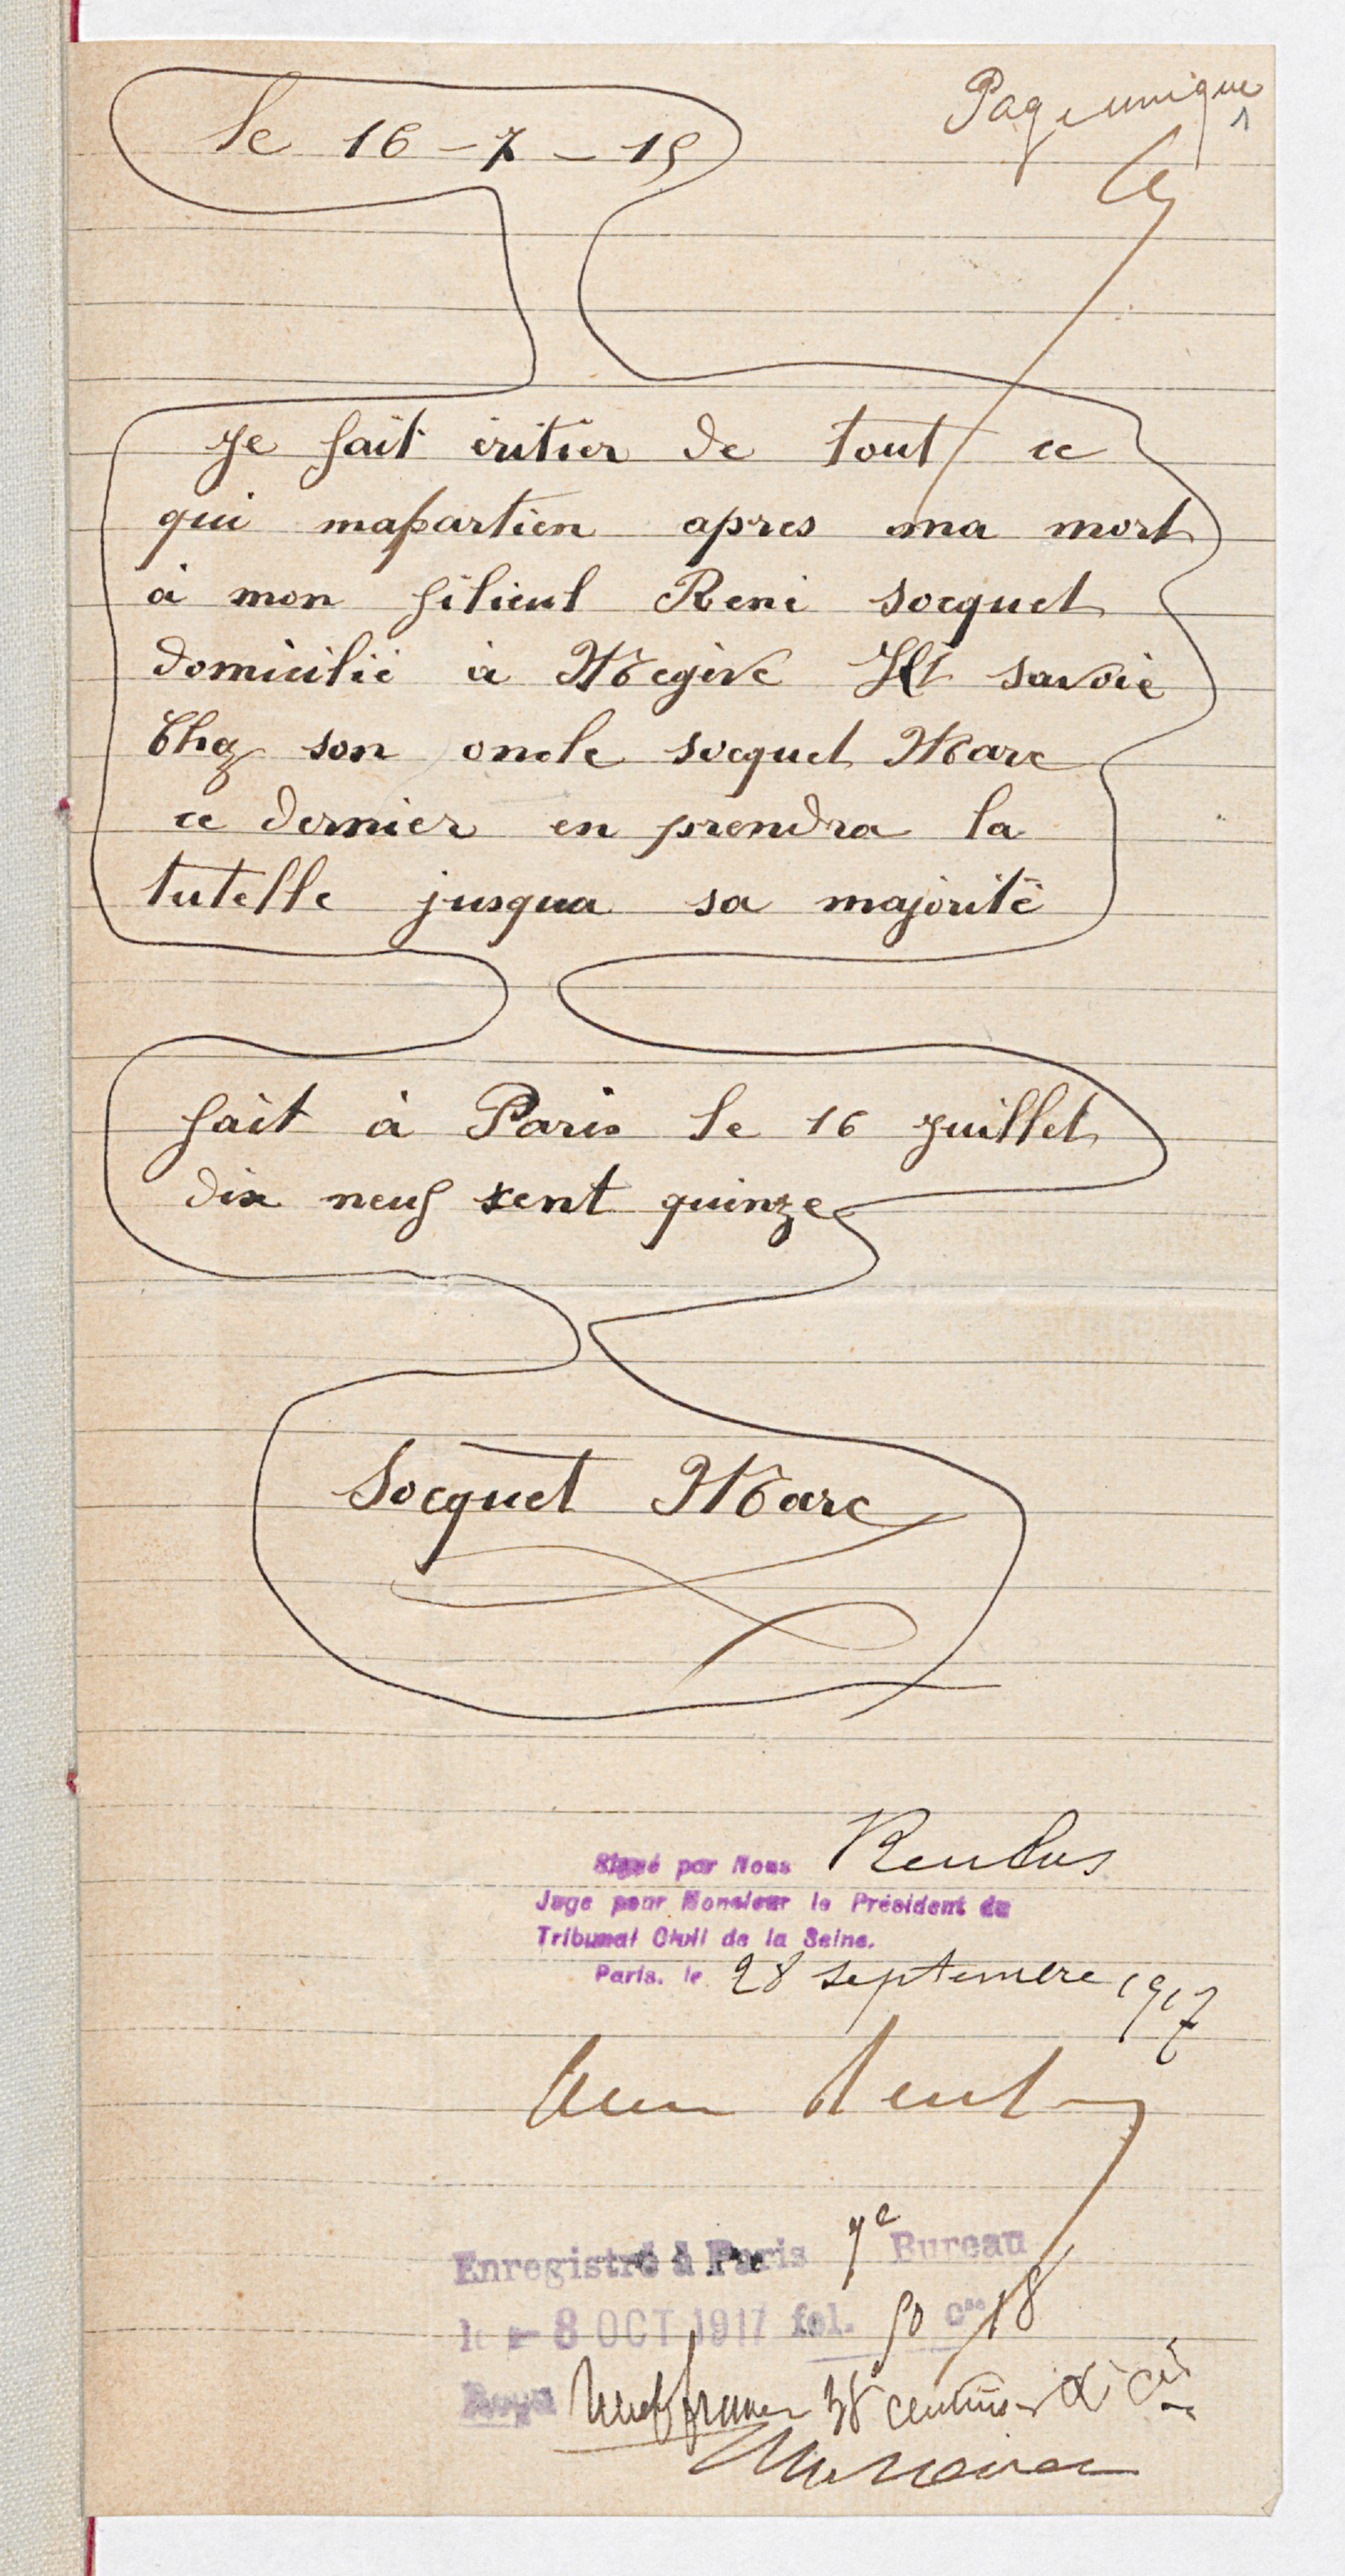 Page unique
1
le 16 - 7 - 15
Je fait éritier de tout ce
qui mapartien apres ma mort
à mon filieul René socquet
domicilié à Megève Ht savoie
Chez son oncle socquet Marc
ce dernier en prendra la
tutelle jusqua sa majorité
fait à Paris le 16 juillet
dix neuf cent quinze
Socquet Marc
Signé par Nous Reulos
Juge pour Monsieur le Président du
Tribunal Civil de la Seine.
Paris, le 28 septembre 1917
Enregistré à Paris 7e Bureau
le - 8 OCT 1917 fol. 50 Cse 18
Reçu Neuf francs 38 centimes